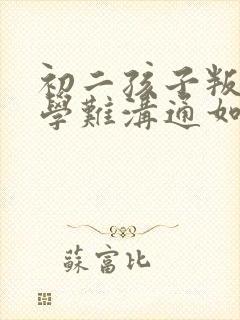 初二孩子叛
學難溝通如
蘇富比